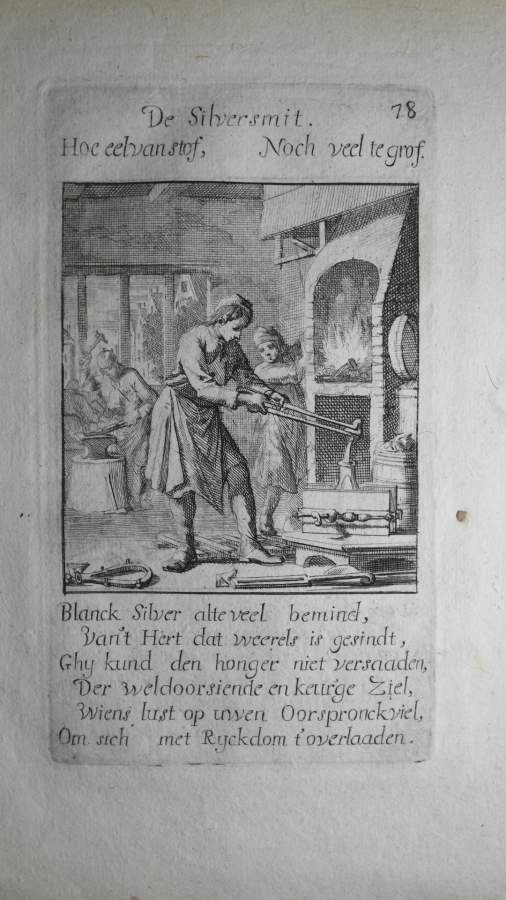 De Silversmit.
78
Hoe eel van stof, Noch veel te grof.
Blanck Silver alte veel bemind,
Van't Hert dat weerels is gesindt,
Ghy kund den honger niet versaaden,
Der weldoorsiende en keur'ge Ziel,
Wiens lust op uwen Oorspronck viel,
Om sich met Ryckdom t'overlaaden.